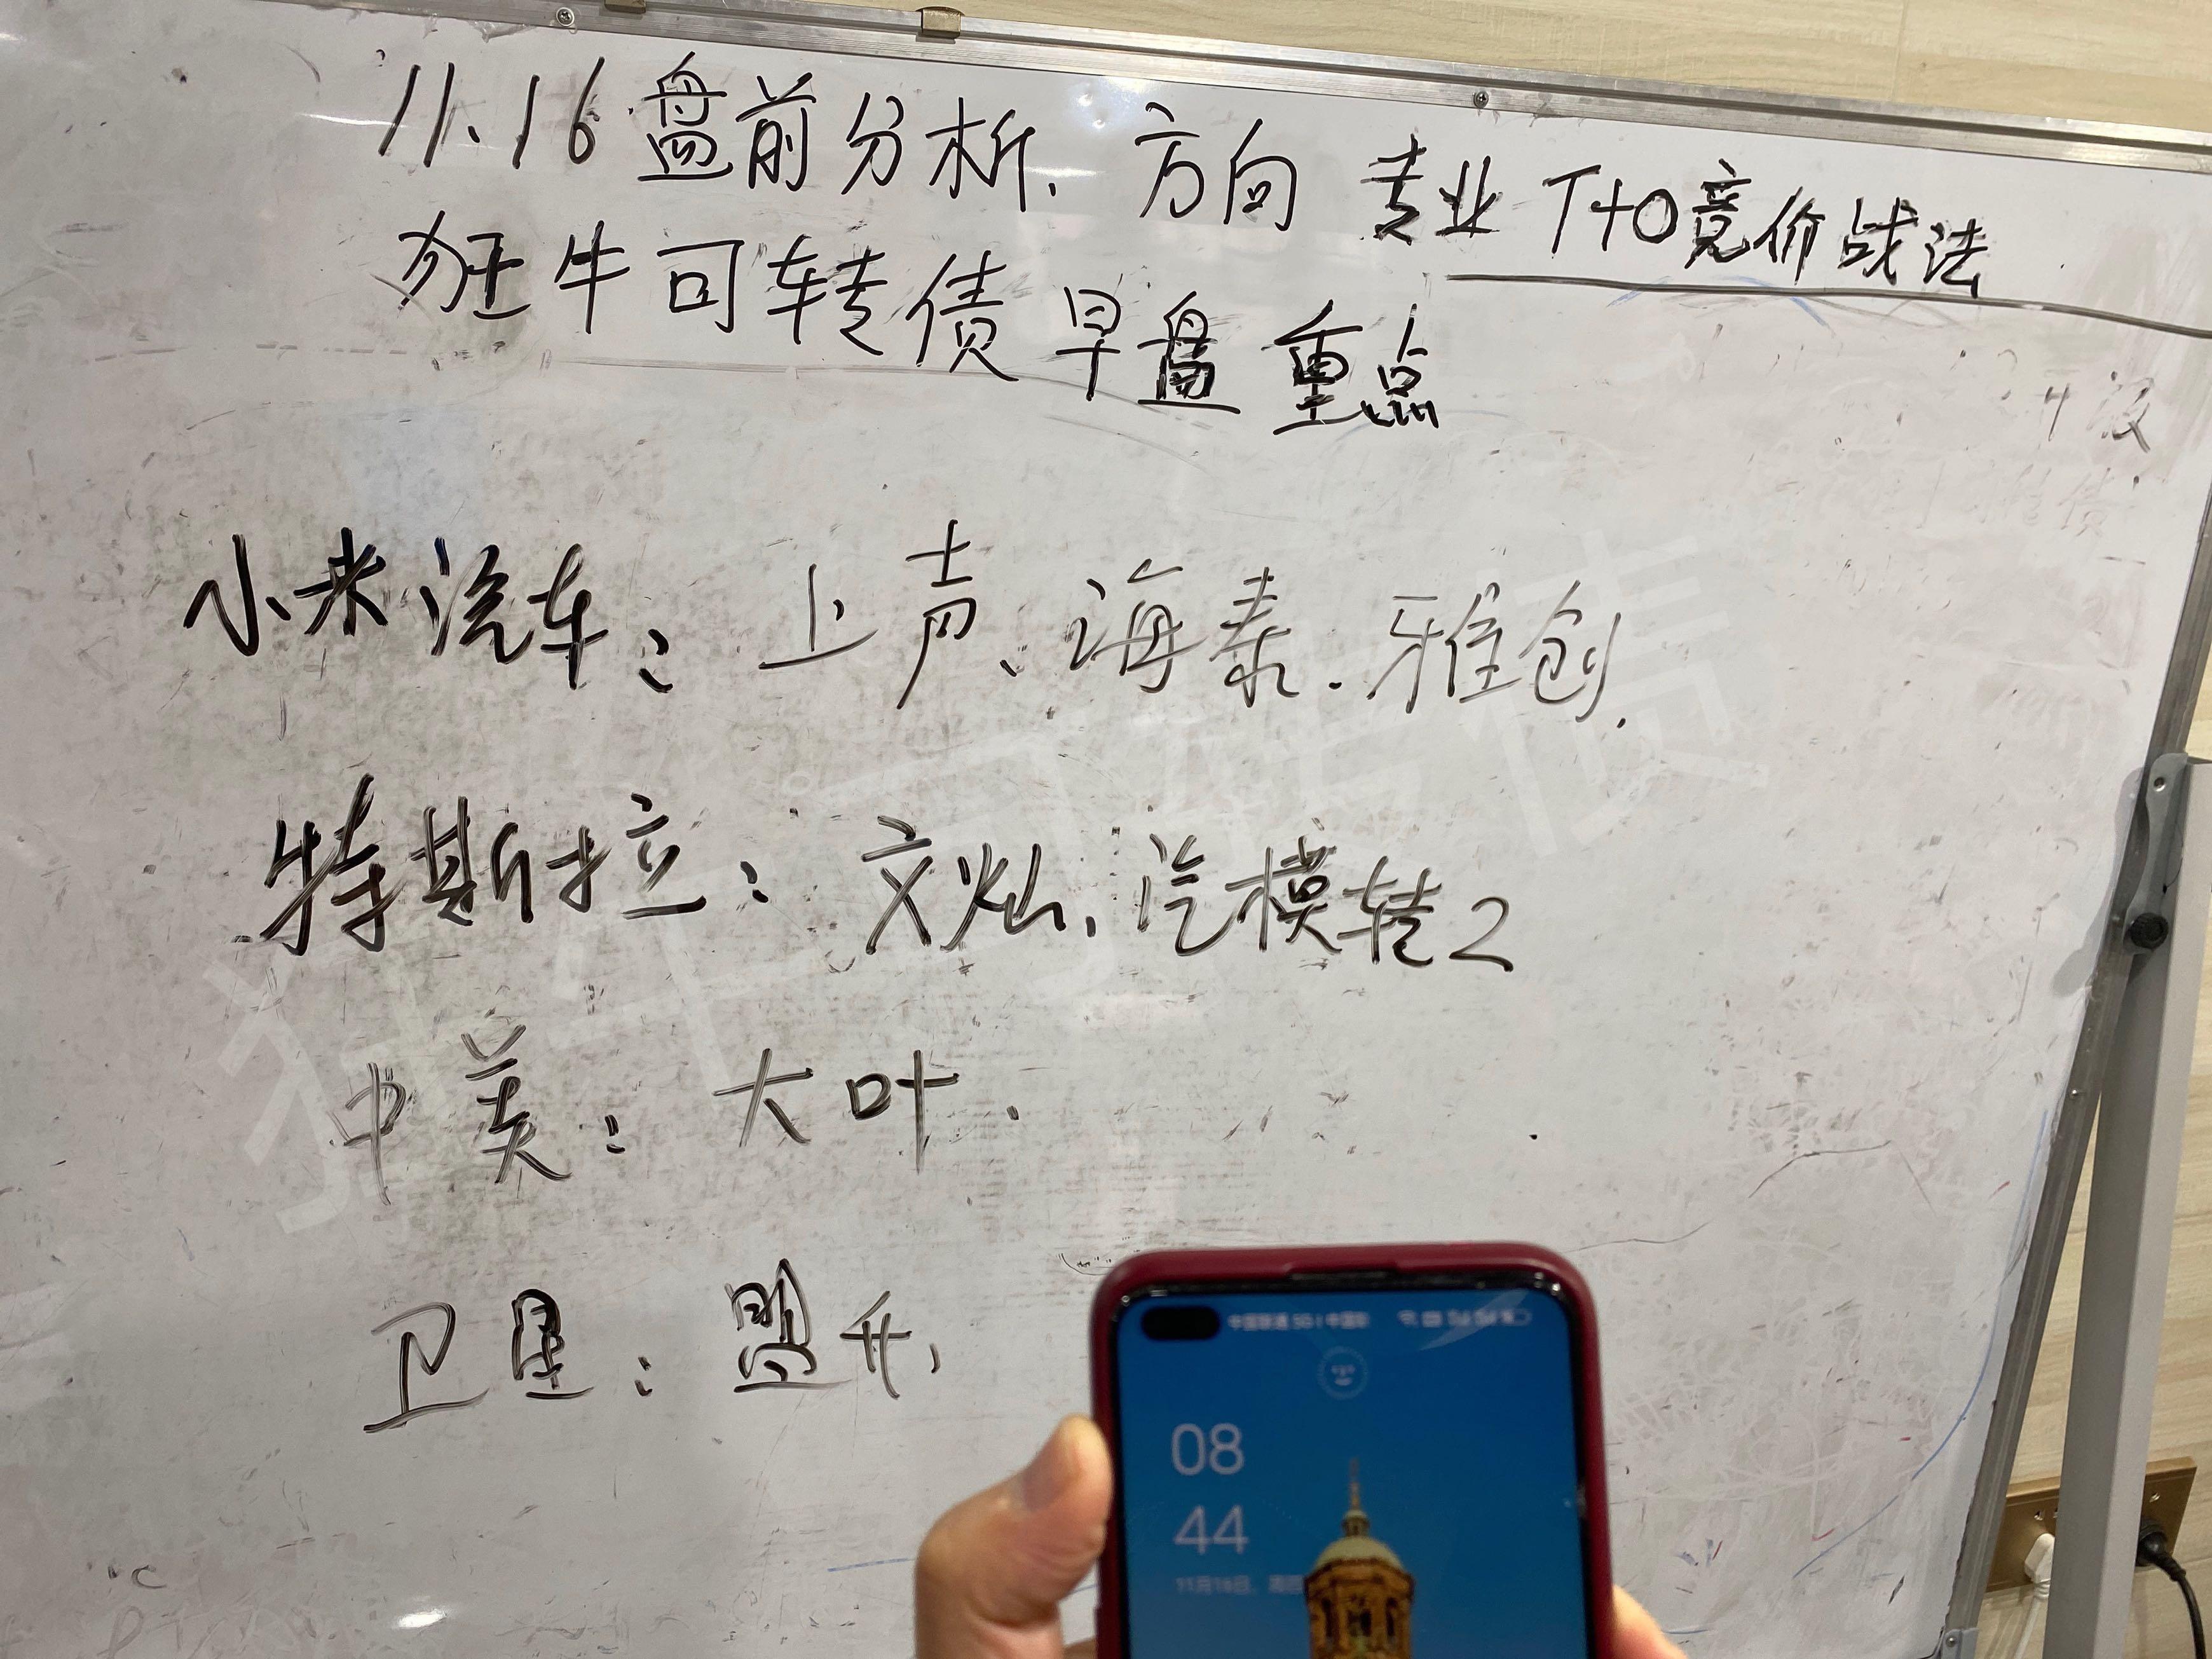 11.16 盘前分析. 方向 专业 T+0竞价战法
狂牛可转债早盘重点
小米汽车: 上声、海泰.雅创.
特斯拉: 文灿、汽模转2
中美: 大叶.
卫星: 盟升、
狂牛可转债
08
44
11月16日, 周四